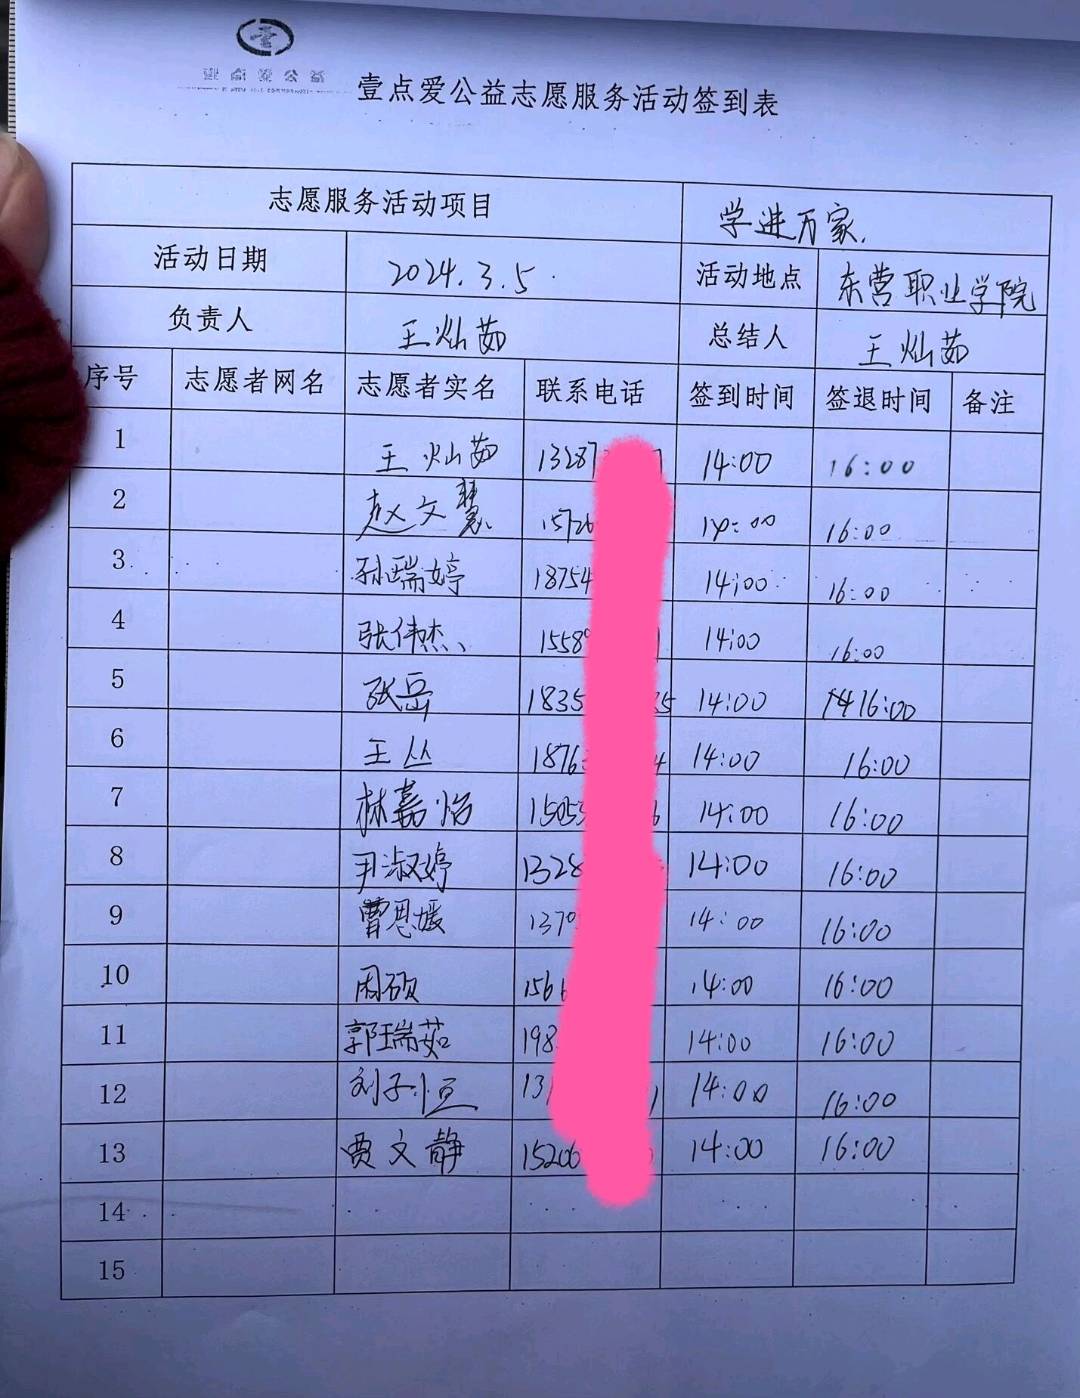 壹点爱公益
壹点爱公益志愿服务活动签到表
志愿服务活动项目 学进万家.
活动日期 2024.3.5. 活动地点 东营职业学院
负责人 王灿茹 总结人 王灿茹
序号 志愿者网名 志愿者实名 联系电话 签到时间 签退时间 备注
1 王灿茹 13287 14:00 16:00
2 赵文慧 15726 14:00 16:00
3 孙瑞婷 18754 14:00 16:00
4 张伟杰 1558 1 14:00 16:00
5 张岳 1835 35 14:00 16:00
6 王丛 1876 4 14:00 16:00
7 林嘉怡 15053 6 14:00 16:00
8 尹淑婷 1328 14:00 16:00
9 曹恩媛 137 14:00 16:00
10 周硕 156 14:00 16:00
11 郭瑞茹 198 14:00 16:00
12 刘子恒 13 14:00 16:00
13 贾文静 15206 14:00 16:00
14
15